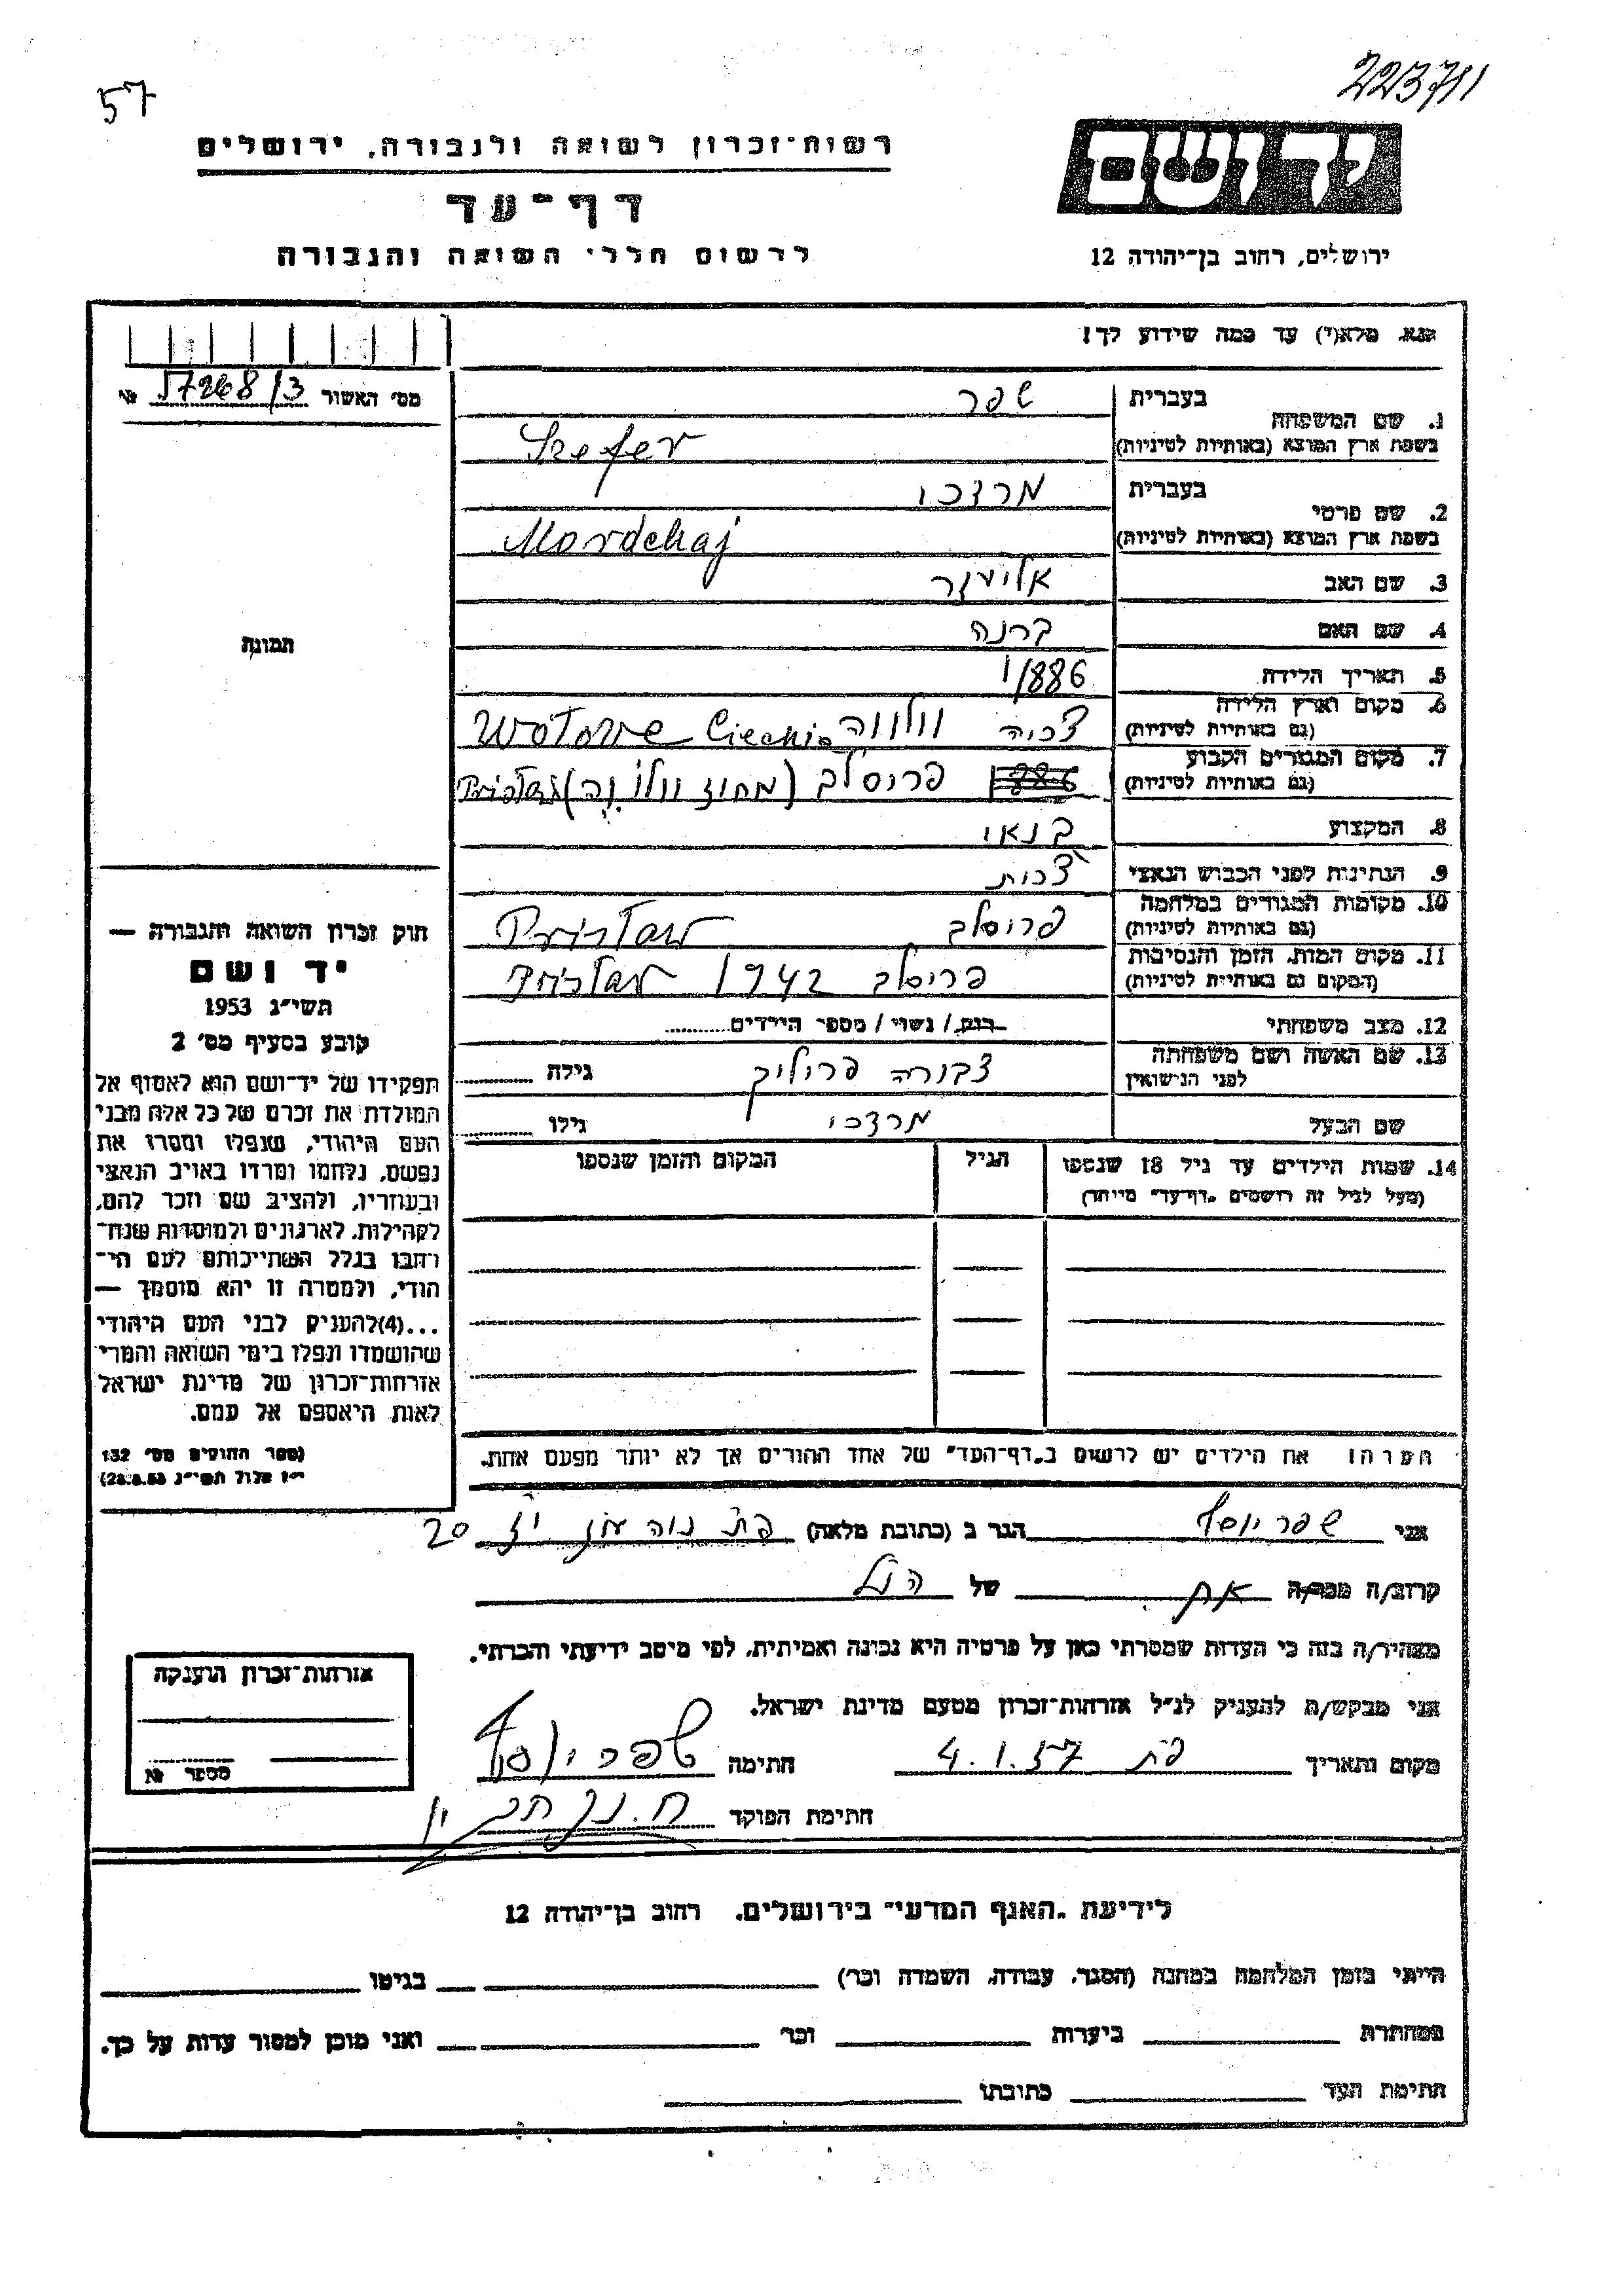 57
223711
רשות־זכרון לשואה ולגבורה, ירושלים
יד ושם
דף־עד
לרשום חללי השואה והגבורה
ירושלים, רחוב בן־יהודה 12
נא מלא(י) עד כמה שידוע לך!
מס' האשור 57268/3 №
1. שם המשפחה
בעברית שפר
בשפת ארץ המוצא (באותיות לטיניות) Szefer
2. שם פרטי
בעברית מרדכי
בשפת ארץ המוצא (באותיות לטיניות) Mordchaj
3. שם האב אליעזר
4. שם האם
5. תאריך הלידה 1886
6. מקום וארץ הלידה
(גם באותיות לטיניות) צכיה
7. מקום המגורים הקבוע
(גם באותיות לטיניות) 1886 פריסלב (מחוז
8. המקצוע בנאי
9. הנתינות לפני הכבוש הנאצי צכית
10. מקומות המגורים במלחמה
(גם באותיות לטיניות) פריסלב Pristaw
11. מקום המות, הזמן והנסיבות
(המקום גם באותיות לטיניות) פריסלב 1942 Pristaw
12. מצב משפחתי רווק / נשוי / מספר הילדים
13. שם האשה ושם משפחתה
לפני הנישואין צפורה גילה
שם הבעל מרדכי גילו
14. שמות הילדים עד גיל 18 שנספו
(מעל לגיל זה רושמים "דף־עד" מיוחד)
הגיל
המקום והזמן שנספו
תמונה
חוק זכרון השואה והגבורה —
יד ושם
תשי"ג 1953
קובע בסעיף מס' 2
תפקידו של יד־ושם הוא לאסוף אל
המולדת את זכרם של כל אלה מבני
העם היהודי, שנפלו ומסרו את
נפשם, נלחמו ומרדו באויב הנאצי
ובעוזריו, ולהציב שם וזכר להם,
לקהילות, לארגונים ולמוסדות שנח־
רבו בגלל השתייכותם לעם הי־
הודי, ולמטרה זו יהא מוסמך —
...(4)להעניק לבני העם היהודי
שהושמדו ונפלו בימי השואה והמרי
אזרחות־זכרון של מדינת ישראל
לאות היאספם אל עמם.
(ספר החוקים מס' 132
י"ז אלול תשי"ג 28.8.53)
הערה: את הילדים יש לרשום ב"דף־העד" של אחד ההורים אך לא יותר מפעם אחת.
אני שפר יוסף הגר ב (כתובת מלאה) פת נוה עוז 20
קרוב/ה מכר/ה של הנ"ל
מצהיר/ה בזה כי העדות שמסרתי כאן על פרטיה היא נכונה ואמיתית, לפי מיטב ידיעתי והכרתי.
אני מבקש/ת להעניק לנ"ל אזרחות־זכרון מטעם מדינת ישראל.
מקום ותאריך פת 4.1.57 חתימה שפר יוסף
חתימת הפוקד
אזרחות־זכרון הוענקה
מספר №
לידיעת "האגף המדעי" בירושלים, רחוב בן־יהודה 12
הייתי בזמן המלחמה במחנה (הסגר, עבודה, השמדה וכו') בגיטו
במחתרת ביערות וכו' ואני מוכן למסור עדות על כך.
חתימת העד כתובתו